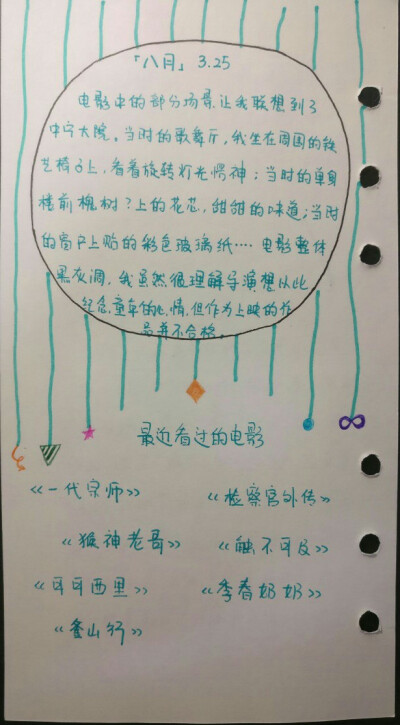 「八月」 3.25
电影中的部分场景让我联想到了
中宁大院。当时的歌舞厅，我坐在周围的铁
艺椅子上，看着旋转灯光愣神；当时的单身
楼前槐树？上的花芯，甜甜的味道；当时
的窗户上贴的彩色玻璃纸…… 电影整体
黑灰调，我虽然很理解导演想以此
纪念童年的心情，但作为上映的作
品并不合格。
最近看过的电影
《一代宗师》 《检察官外传》
《猴神老哥》 《触不可及》
《可可西里》 《季春奶奶》
《釜山行》